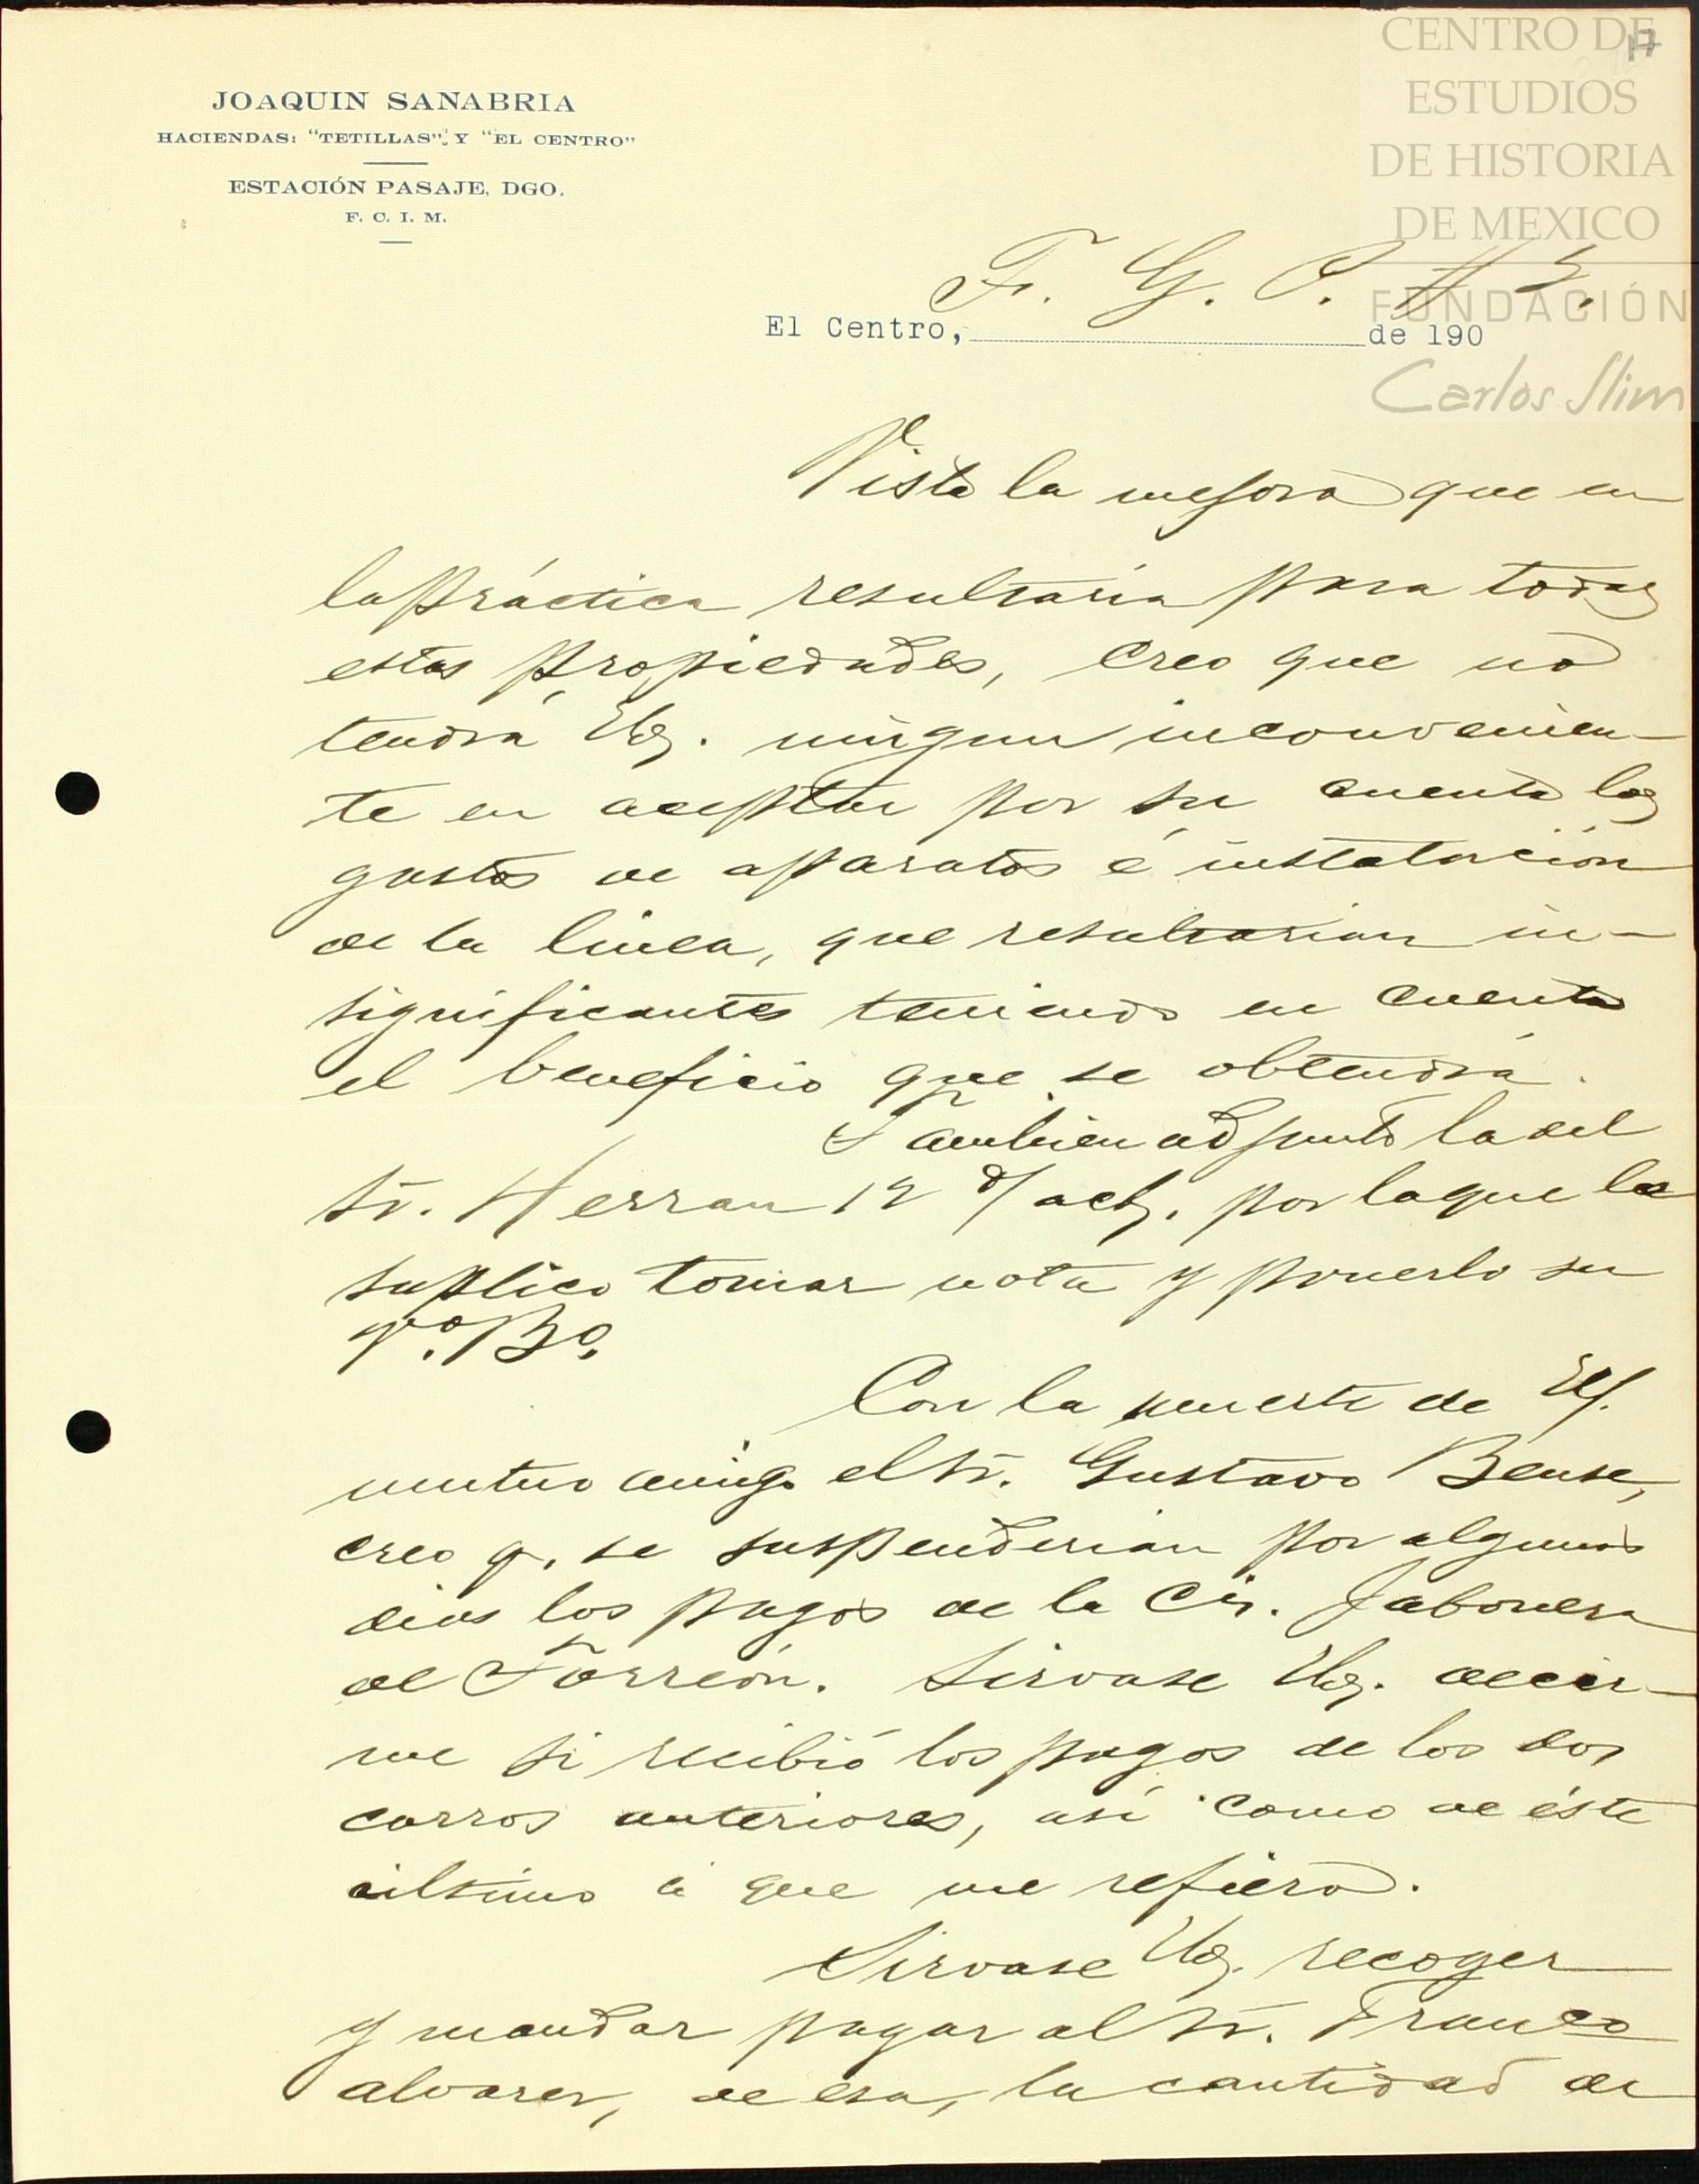 CENTRO DE
ESTUDIOS
DE HISTORIA
DE MEXICO
FUNDACIÓN
Carlos Slim
17
JOAQUIN SANABRIA
HACIENDAS: "TETILLAS" Y "EL CENTRO"
ESTACIÓN PASAJE, DGO.
F. C. I. M.
F. G. C. # 2.
El Centro, de 190
Vista la mejora que en
la práctica resultaría para todas
estas propiedades, creo que no
tendrá Ud. ningun inconvenien-
te en aceptar por su cuenta los
gastos de aparatos é instalación
de la linea, que resultarian in-
significantes teniendo en cuenta
el beneficio que se obtendrá.
Tambien adjunto la del
Sr. Herran 12 d/ act. por la que le
suplico tomar nota y ponerlo su
Vo. Bo.
Con la muerte de
mutuo amigo el Sr. Gustavo Bense,
creo q. se suspenderían por algunos
dias los pagos de la Cia. Jabonera
de Torreón. Sirvase Ud. decir-
me si recibió los pagos de los dos
carros anteriores, así como de éste
último á que me refiero.
Sirvase Ud. recoger
y mandar pagar al Sr. Franco
Alvarez, de esa, la cantidad de